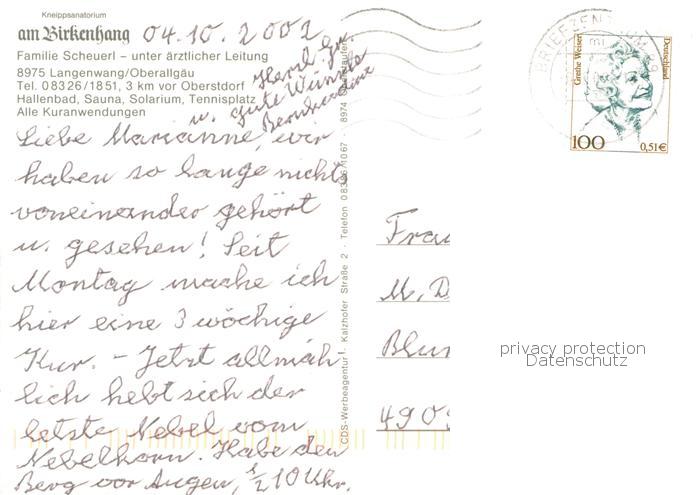 Kneippsanatorium
am Birkenhang
04.10.2002
Familie Scheuerl – unter ärztlicher Leitung
8975 Langenwang/Oberallgäu
Tel. 08326/1851, 3 km vor Oberstdorf
Hallenbad, Sauna, Solarium, Tennisplatz
Alle Kuranwendungen
Herzl. Gr.
u. gute Wünsche
Bernhardine
Liebe Marianne, wir
haben so lange nichts
voneinander gehört
u. gesehen! Seit
Montag mache ich
hier eine 3 wöchige
Kur. – Jetzt allmäh
lich hebt sich der
letzte Nebel vom
Nebelhorn. Habe den
Berg vor Augen, ½ 10 Uhr.
CDS-Werbeagentur · Kalzhofer Straße 2 · Telefon 08386/1067 · 8974 Oberstaufen
BRIEFZENTRUM
Grethe Weiser
Deutschland
100
0,51€
Frau
M. D
Blu
490
privacy protection
Datenschutz